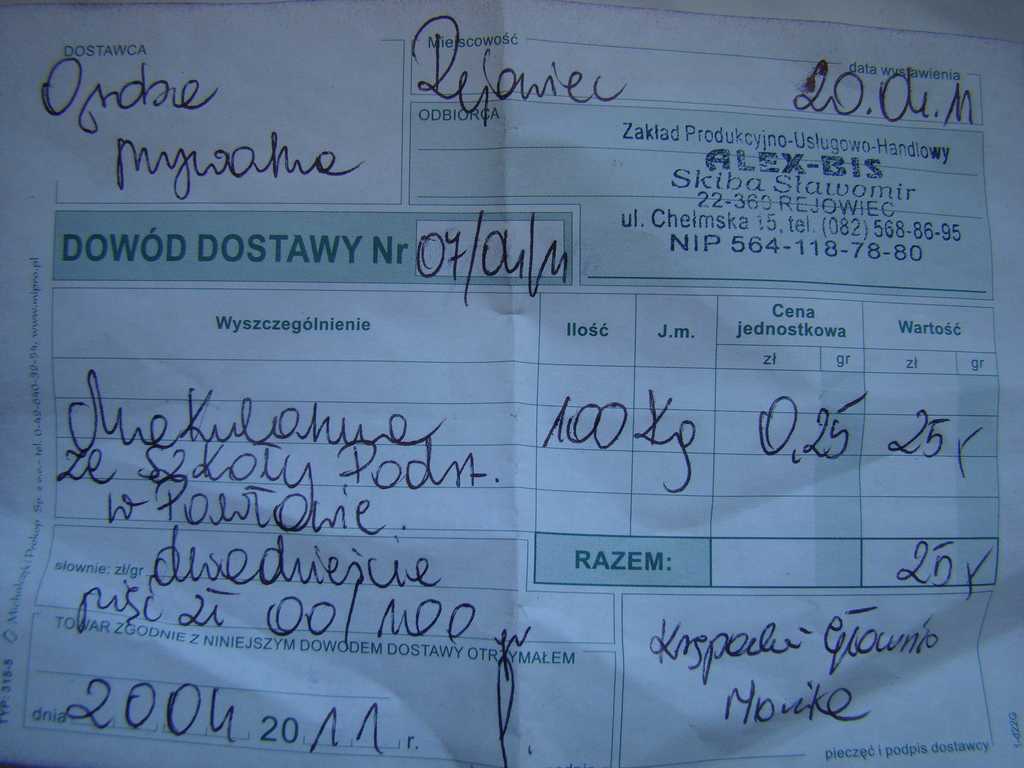 DOSTAWCA
Miejscowość
Rejowiec
data wystawienia
20.04.11
prywatna
ODBIORCA
Zakład Produkcyjno-Usługowo-Handlowy
ALEX-BIS
Skiba Sławomir
22-360 REJOWIEC
ul. Chełmska 15, tel. (082) 568-86-95
NIP 564-118-78-80
DOWÓD DOSTAWY Nr 07/04/11
Wyszczególnienie
Ilość
J.m.
Cena jednostkowa
Wartość
zł gr zł gr
Makulatura 100 kg 0,25 25
ze szkoły Podst.
w Pawłowie.
RAZEM: 25
słownie: zł/gr dwadzieścia
pięć zł 00/100 gr
TOWAR ZGODNIE Z NINIEJSZYM DOWODEM DOSTAWY OTRZYMAŁEM
dnia 20 04 2011 r.
Monika
pieczęć i podpis dostawcy
TYP: 318-5 © Michalczyk i Prokop Sp. z o.o.
www.mipro.pl